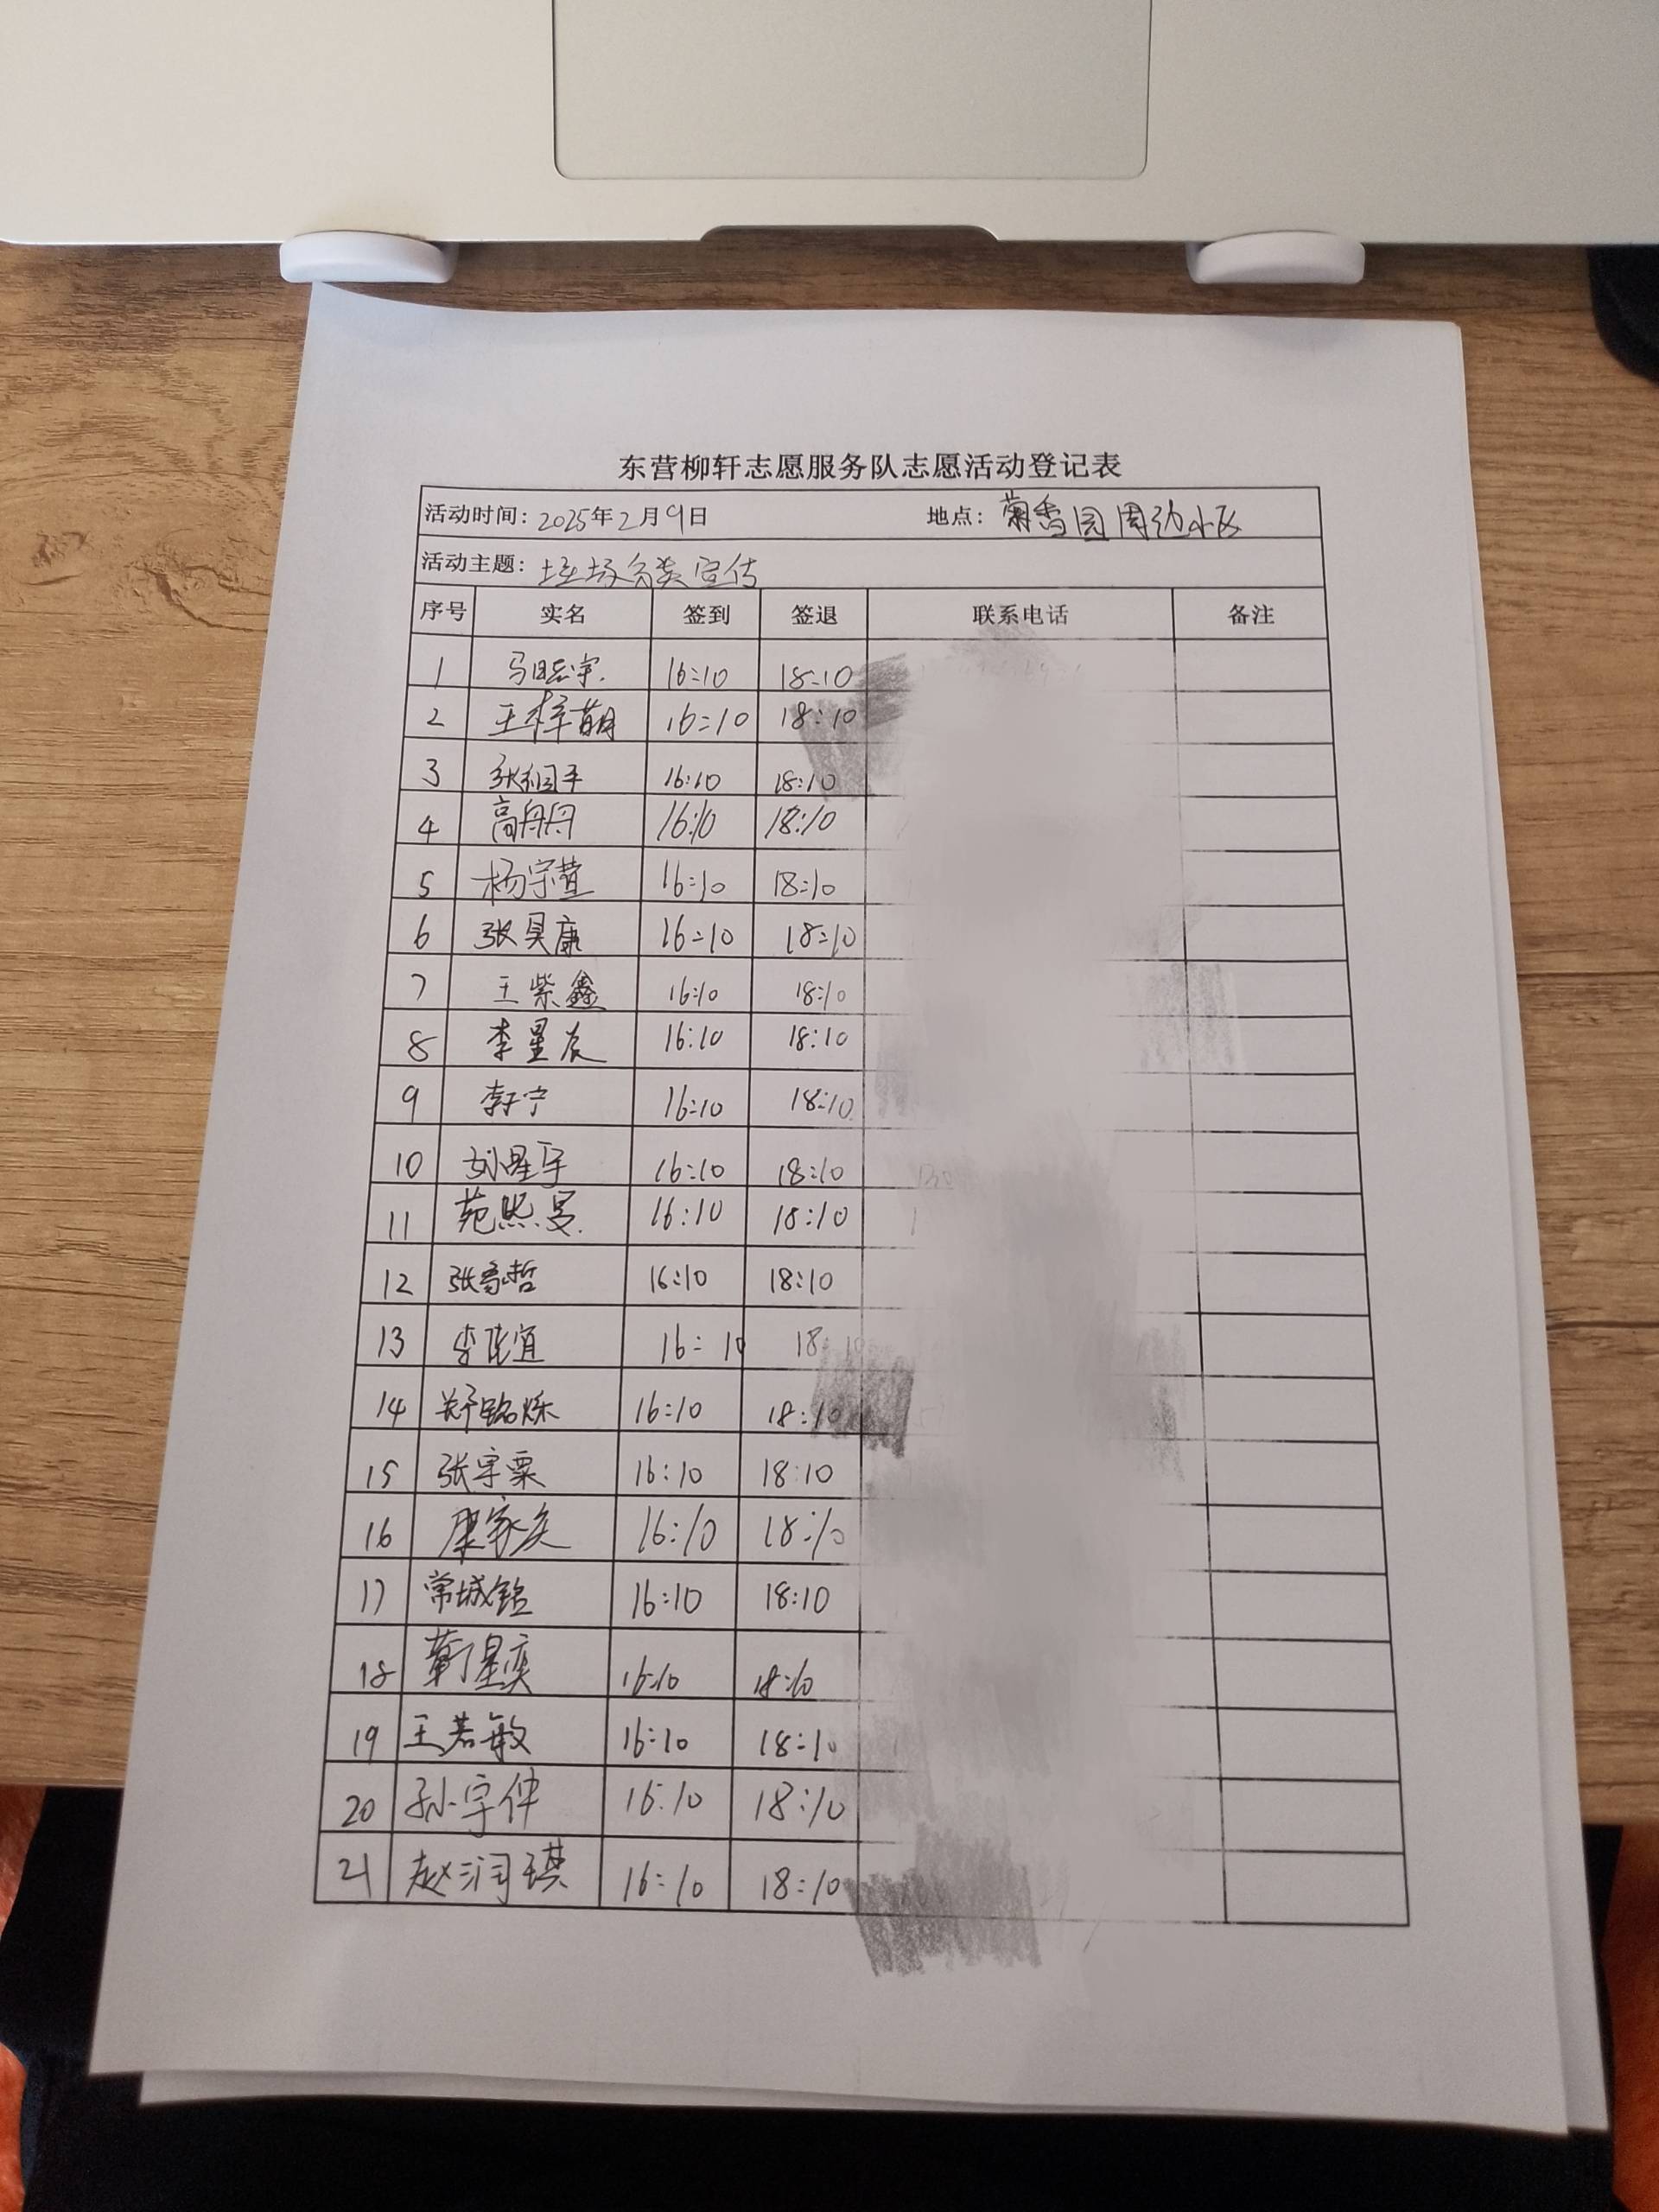 东营柳轩志愿服务队志愿活动登记表
活动时间：2025年2月9日 地点：菊香园周边小区
活动主题：垃圾分类宣传
序号 实名 签到 签退 联系电话 备注
1 16:10 18:10
2 王梓萌 16:10 18:10
3 16:10 18:10
4 高丹丹 16:10 18:10
5 杨宗萱 16:10 18:10
6 张昊康 16:10 18:10
7 王紫鑫 16:10 18:10
8 李星辰 16:10 18:10
9 16:10 18:10
10 刘星宇 16:10 18:10
11 苑熙旻 16:10 18:10
12 张家哲 16:10 18:10
13 李佳宜 16:10 18:10
14 郑铭烁 16:10 18:10
15 张宇栗 16:10 18:10
16 16:10 18:10
17 常城铭 16:10 18:10
18 靳星奕 16:10 18:10
19 王若敏 16:10 18:10
20 孙宇伴 16:10 18:10
21 赵润琪 16:10 18:10